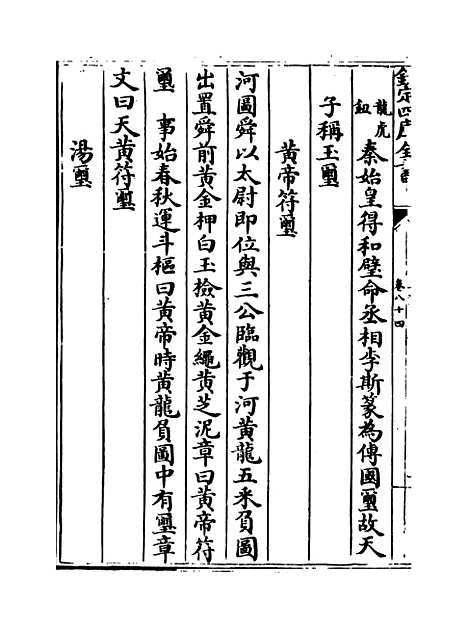 欽定四庫全書
卷八十四
龍虎
鈕
秦始皇得和璧命丞相李斯篆為傳國璽故天
子稱玉璽
黄帝符璽
河圖舜以太尉即位與三公臨觀于河黄龍五采負圖
出置舜前黄金柙白玉檢黄金繩黄芝泥章曰黄帝符
璽　事始春秋運斗樞曰黄帝時黄龍負圖中有璽章
文曰天黄符璽
湯璽